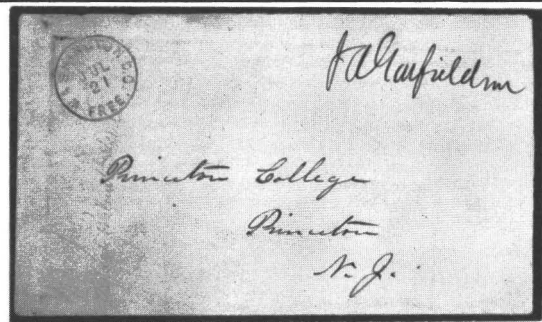 JUL
21
FREE
J A Garfield m c
Princeton College
Princeton
N. J.